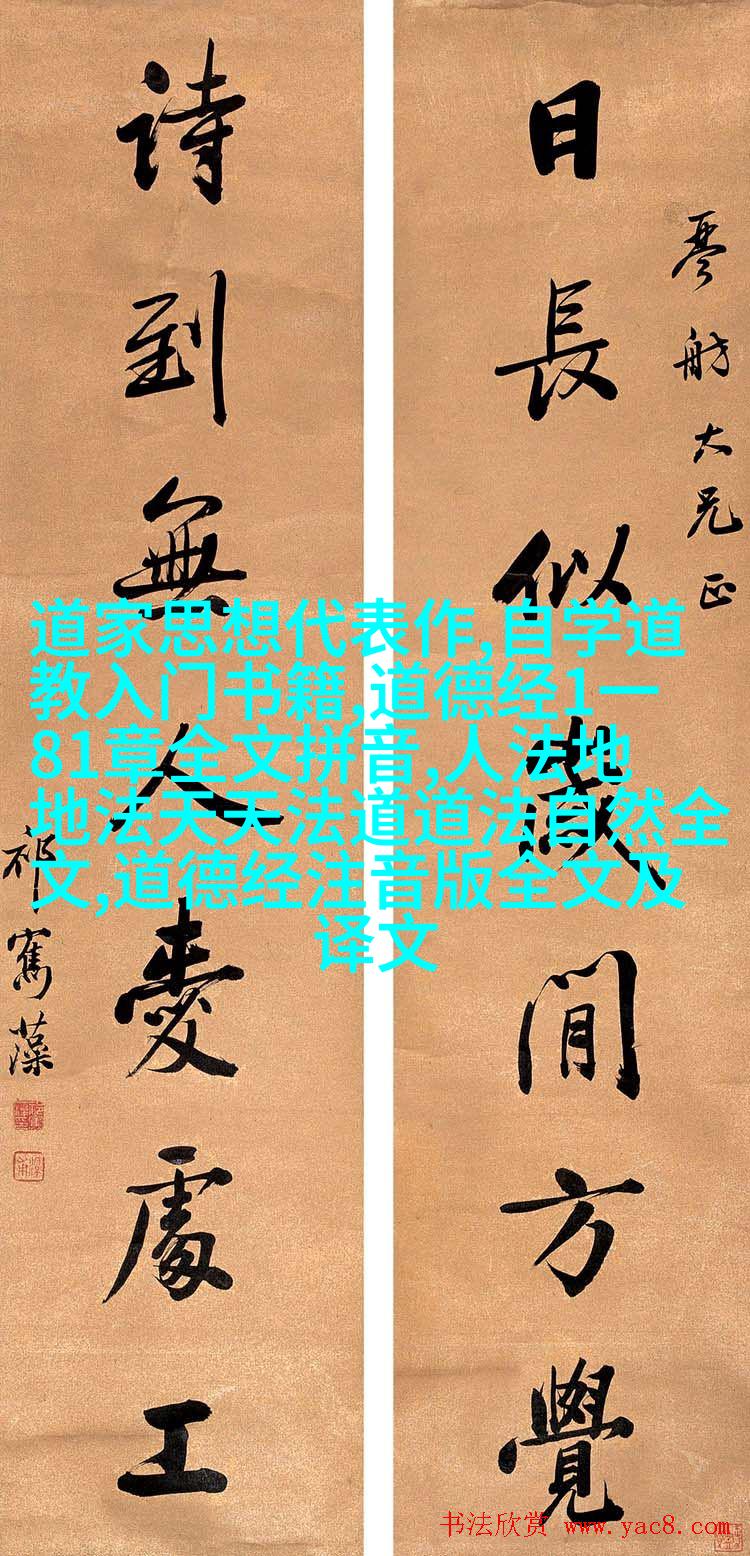 日長似歲閒方覺
琴舫大兄正
詩到無人愛處工
祁寯藻
道家思想代表作,自学道
教入门书籍,道德经1一
81章全文拼音,人法地
地法天天法道道法自然全
文,道德经注音版全文及
译文
书法欣赏 www.yac8.com